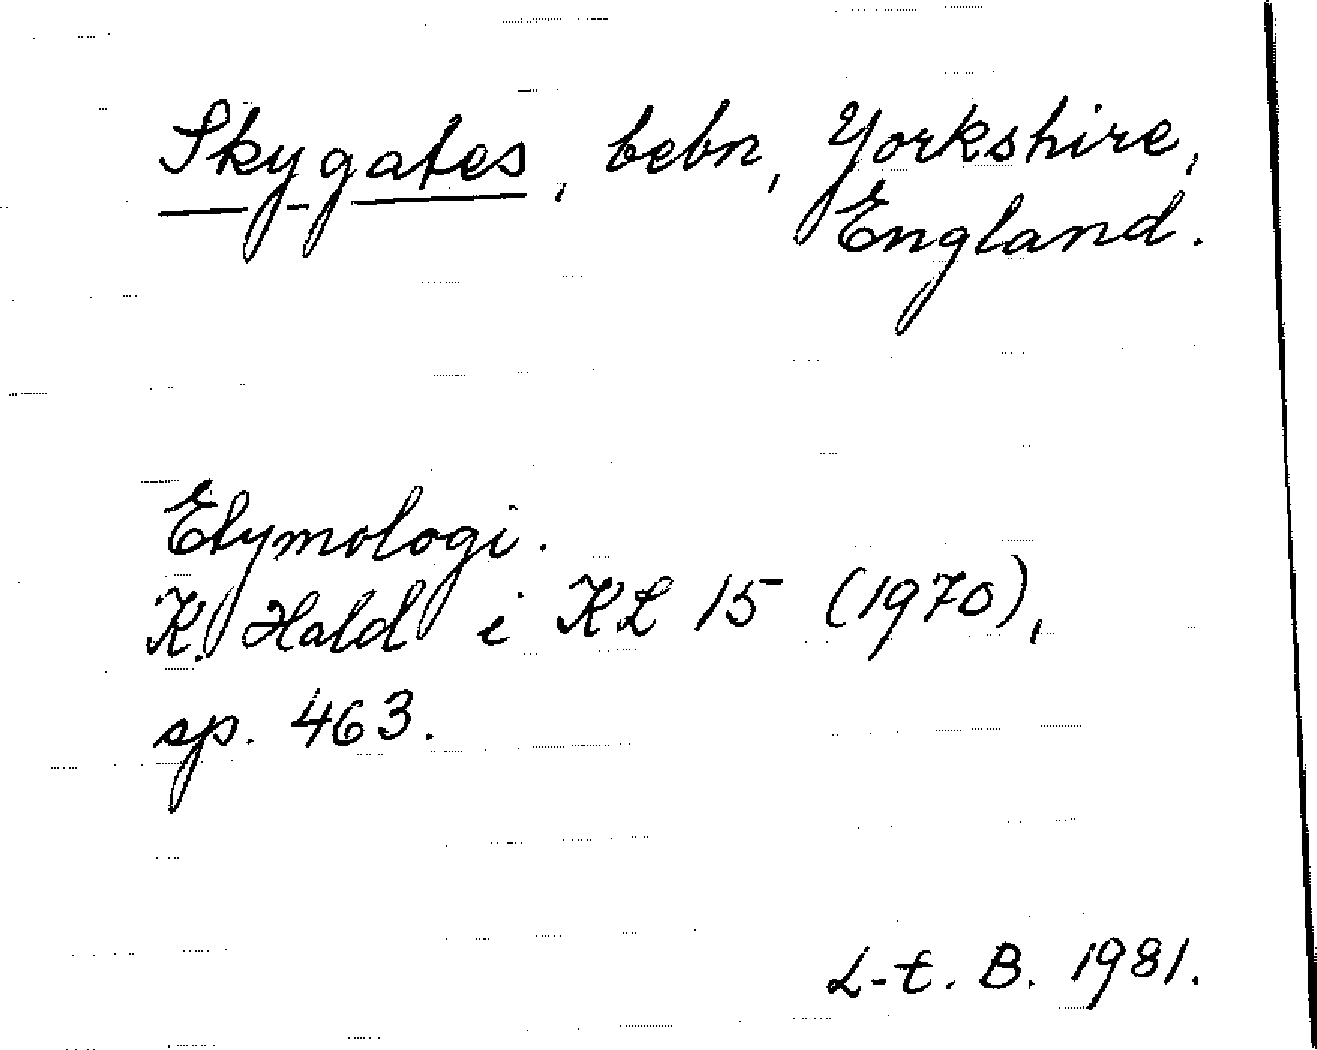 Skygates, bebn, Yorkshire,
England.
Etymologi.
K. Hald i KL 15 (1970),
sp. 463.
L-t. B. 1981.